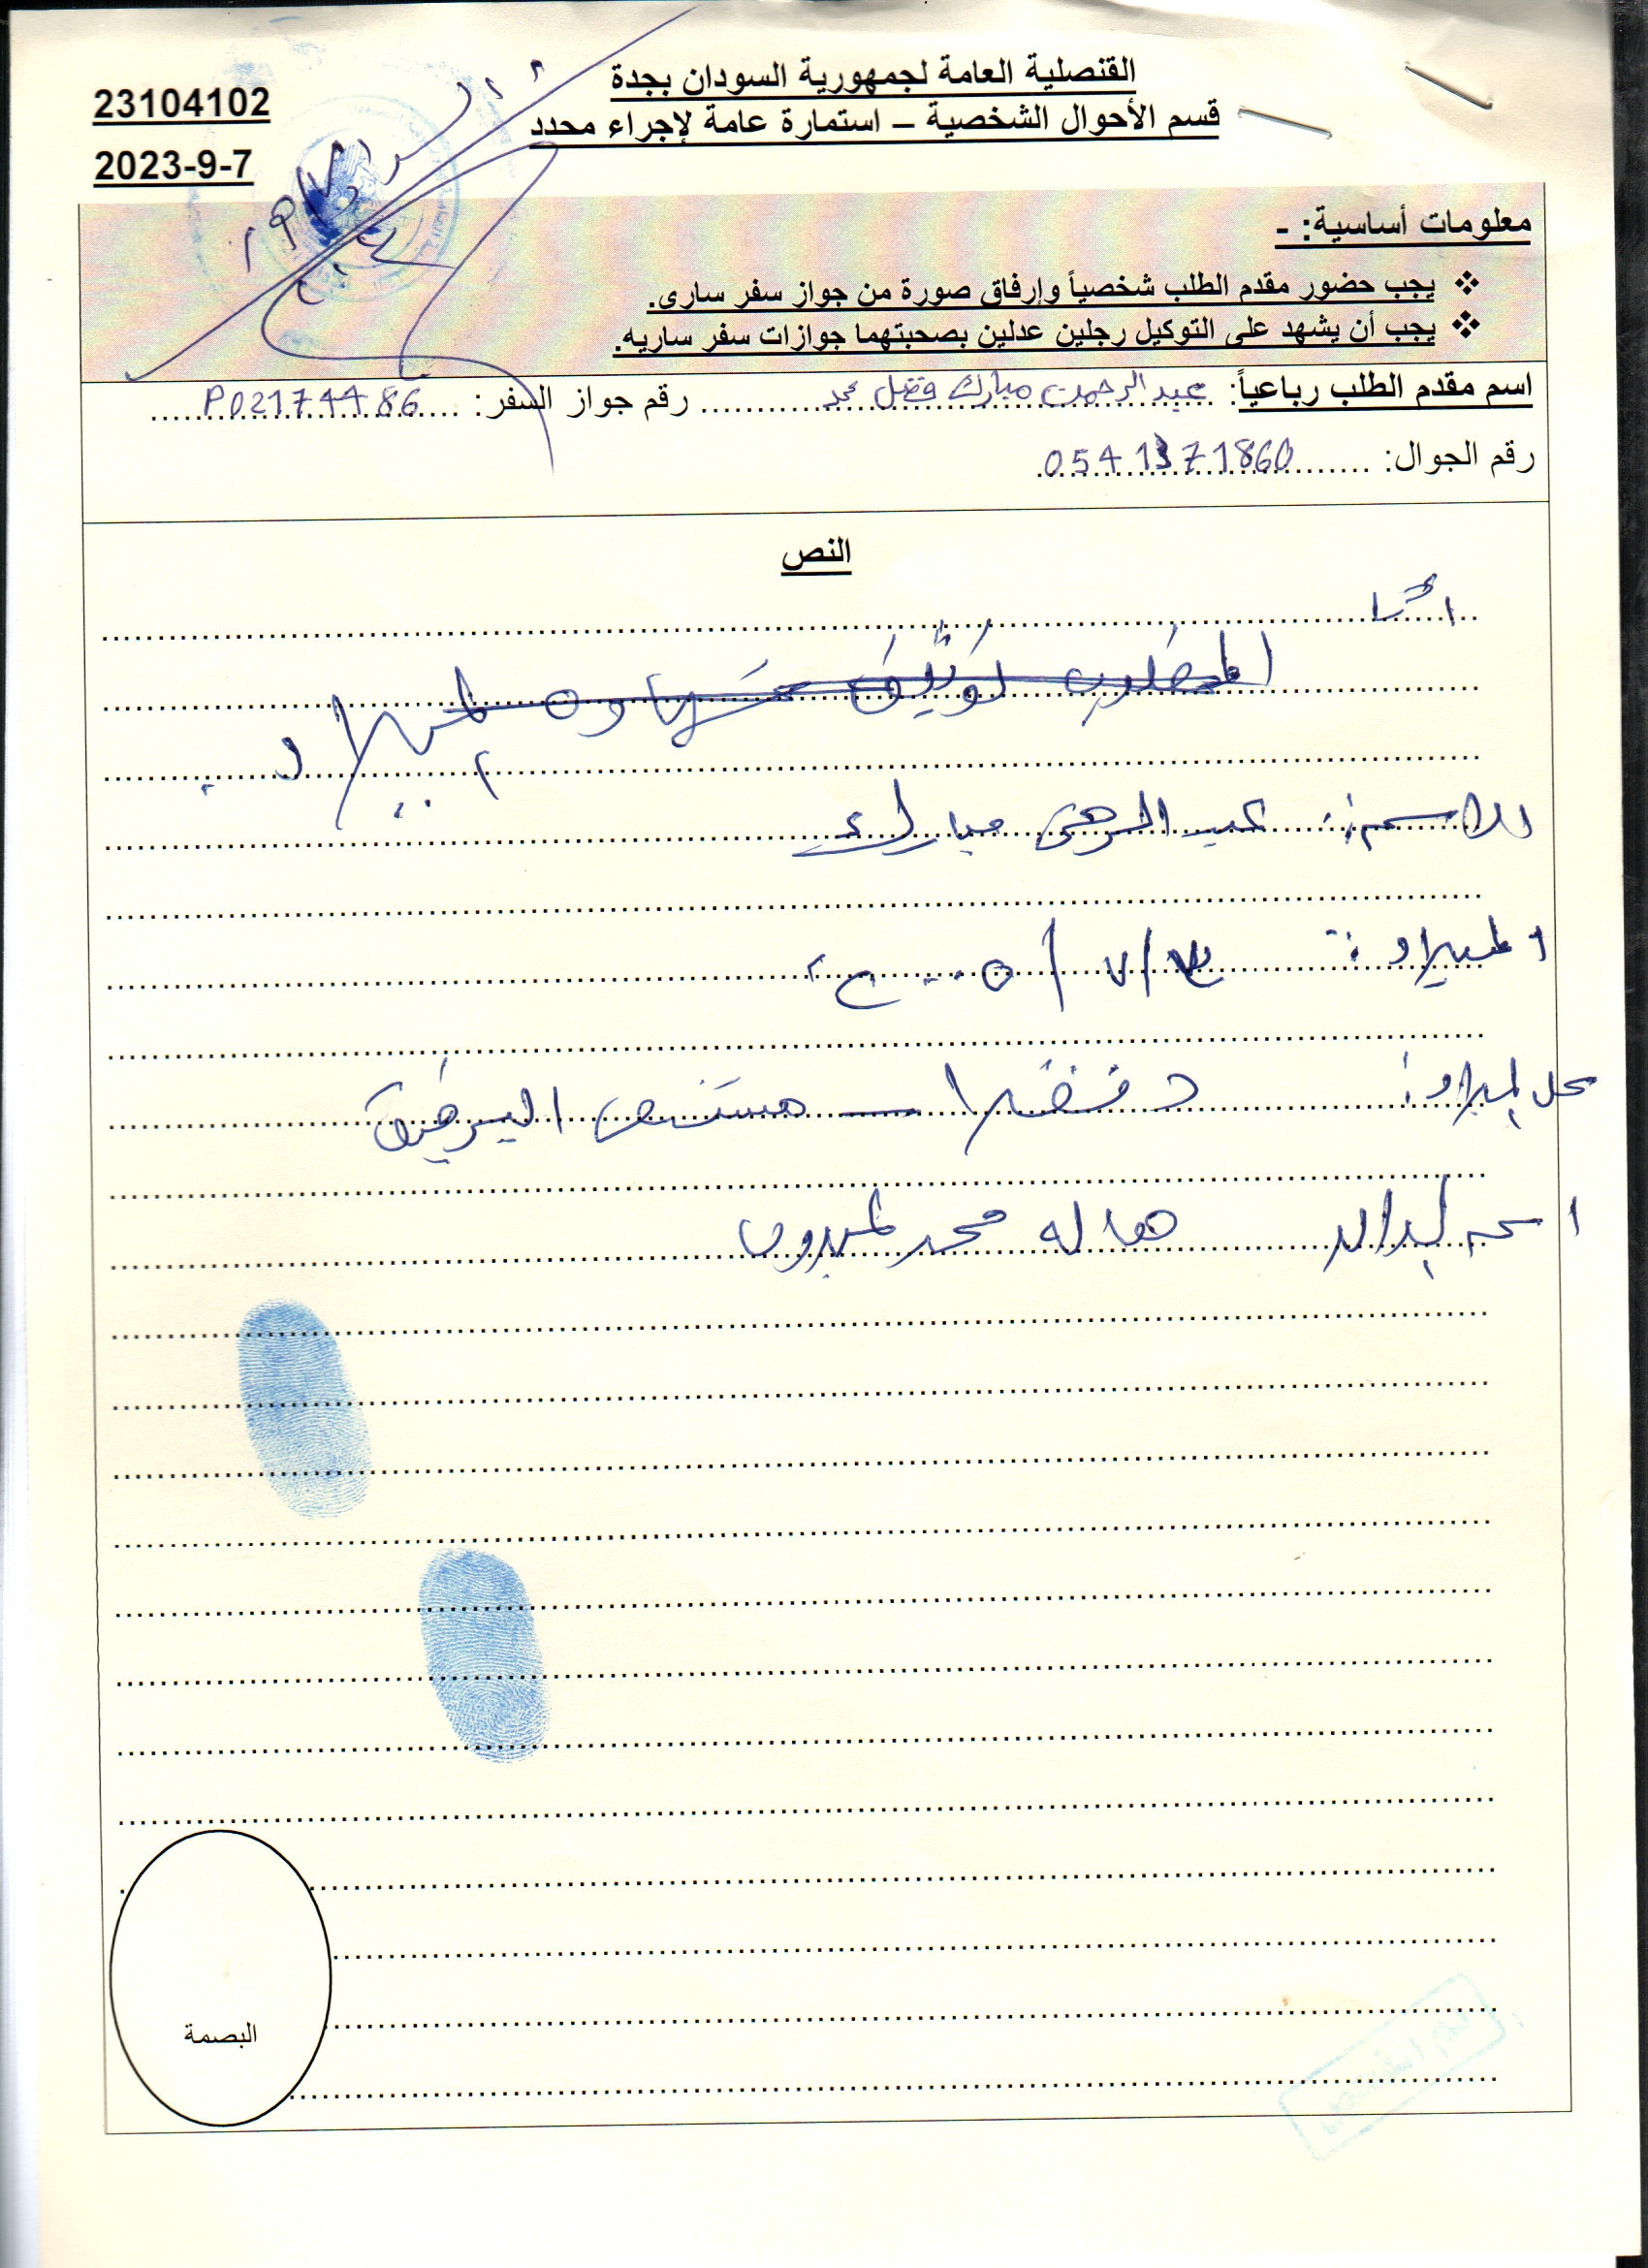 القنصلية العامة لجمهورية السودان بجدة
قسم الأحوال الشخصية – استمارة عامة لإجراء محدد
23104102
2023-9-7
معلومات أساسية: -
❖ يجب حضور مقدم الطلب شخصياً وإرفاق صورة من جواز سفر سارى.
❖ يجب أن يشهد على التوكيل رجلين عدلين بصحبتهما جوازات سفر ساريه.
اسم مقدم الطلب رباعياً: عبدالرحمن مبارك فضل محمد رقم جواز السفر: P02174486
رقم الجوال: 0541371860
النص
أنا
المطلوب توثيق شهادة الميلاد
الاسم: عبد الرحمن مبارك
الميلاد: /٧/٢٠٠٥
محل الميلاد: مستشفى
اسم الوالدة هاله محمد
البصمة